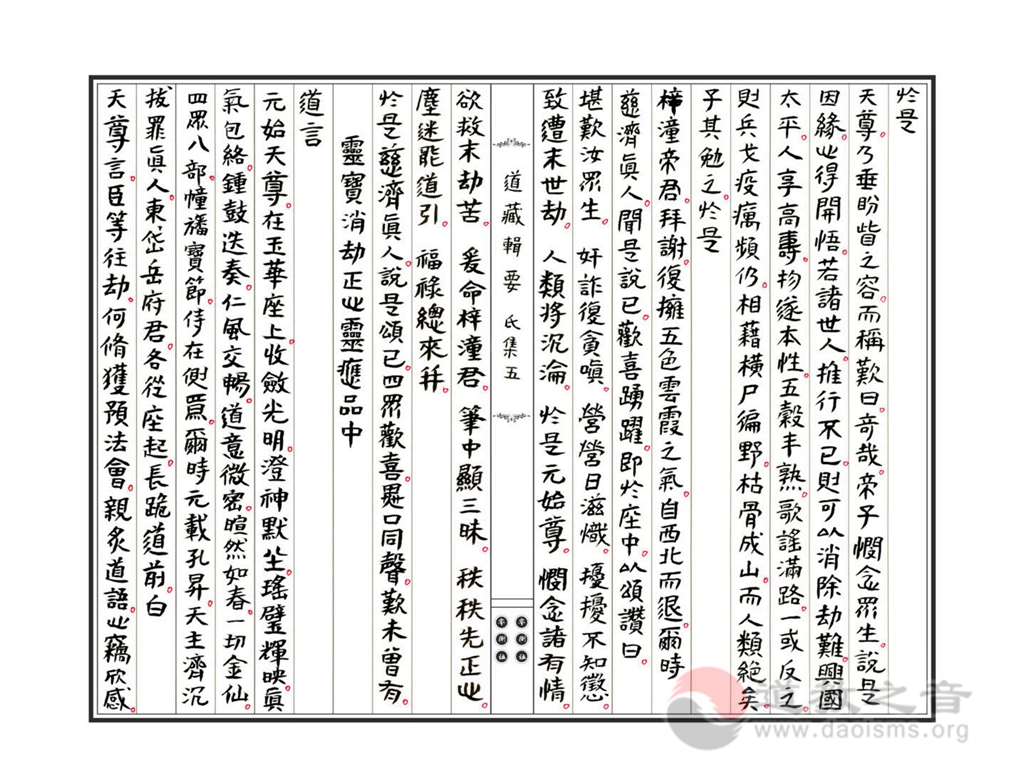 於是
天尊乃垂盼眥之容而稱歎曰奇哉帝子憫念眾生說是
因緣必得開悟若諸世人推行不已則可以消除劫難興國
太平人享高壽物遂本性五穀丰熟歌謠滿路一或反之
則兵戈疫癘頻仍相藉橫尸徧野枯骨成山而人類絕矣
子其勉之於是
梓潼帝君拜謝復擁五色雲霞之氣自西北而退爾時
慈濟真人聞是說已歡喜踴躍即於座中以頌讚曰
堪歎汝眾生 奸詐復貪嗔 營營日滋熾 擾擾不知懲
致遭末世劫 人類将沉淪 於是元始尊 憫念諸有情
道藏輯要 氐集五
欲救末劫苦 爰命梓潼君 筆中顯三昧 秩秩先正心
塵迷能道引 福祿總來并
於是慈濟真人說是頌已四眾歡喜異口同聲歎未曾有
靈寶消劫正心靈應品中
道言
元始天尊在玉華座上收斂光明澄神默坐瑤璧輝映真
氣包絡鍾鼓迭奏仁風交暢道意微密暄然如春一切金仙
四眾八部幢旛寶節侍在側焉爾時元載孔昇天主濟沉
拔罪真人東岱岳府君各從座起長跪道前白
天尊言臣等往劫何脩獲預法會親炙道語心竊欣感
道教之音
www.daoisms.org